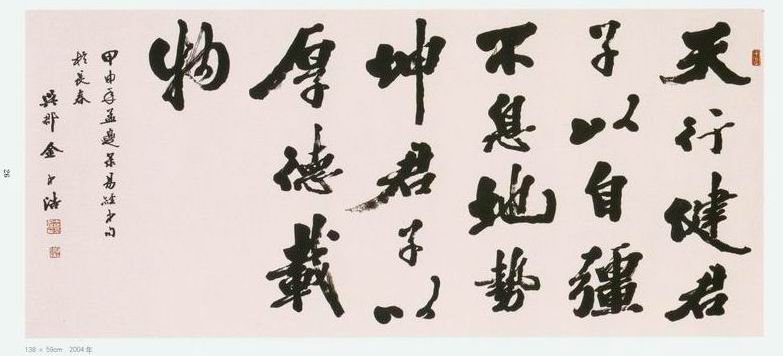 天行健君
子以自彊
不息地勢
坤君子以
厚德載
物
甲申年孟夏录易經中句
於長春
吳郡金中浩
26
138 × 59cm 2004年